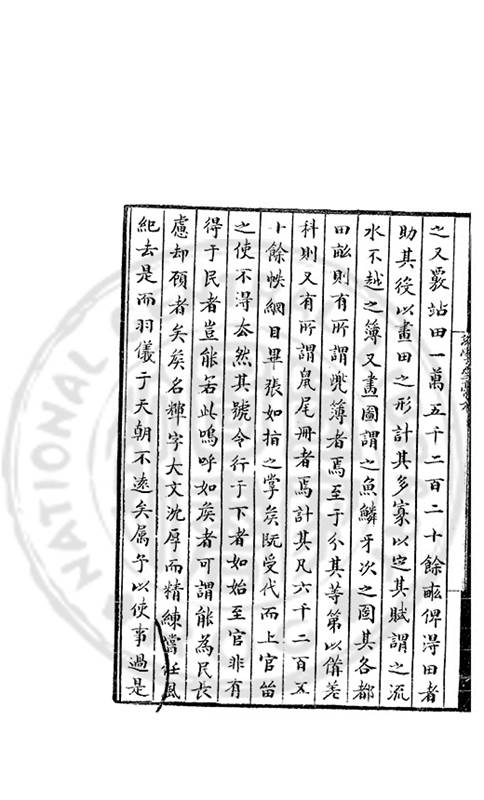 之又覈站田一萬五千二百二十餘畝俾得田者
助其役以畫田之形計其多寡以定其賦謂之流
水不越之簿又畫圖謂之魚鱗牙次之圖其各都
田畝則有所謂兠簿者焉至于分其等第以備差
科則又有所謂鼠尾冊者焉計其凡六千二百五
十餘帙綱目畢張如指之掌矣旣受代而上官留
之使不得去然其號令行于下者如始至官非有
得于民者豈能若此嗚呼如矦者可謂能為民長
慮却顧者矣矦名輝字大文沈厚而精練嘗任風
紀去是而羽儀于天朝不遠矣属予以使事過是
NATIONAL